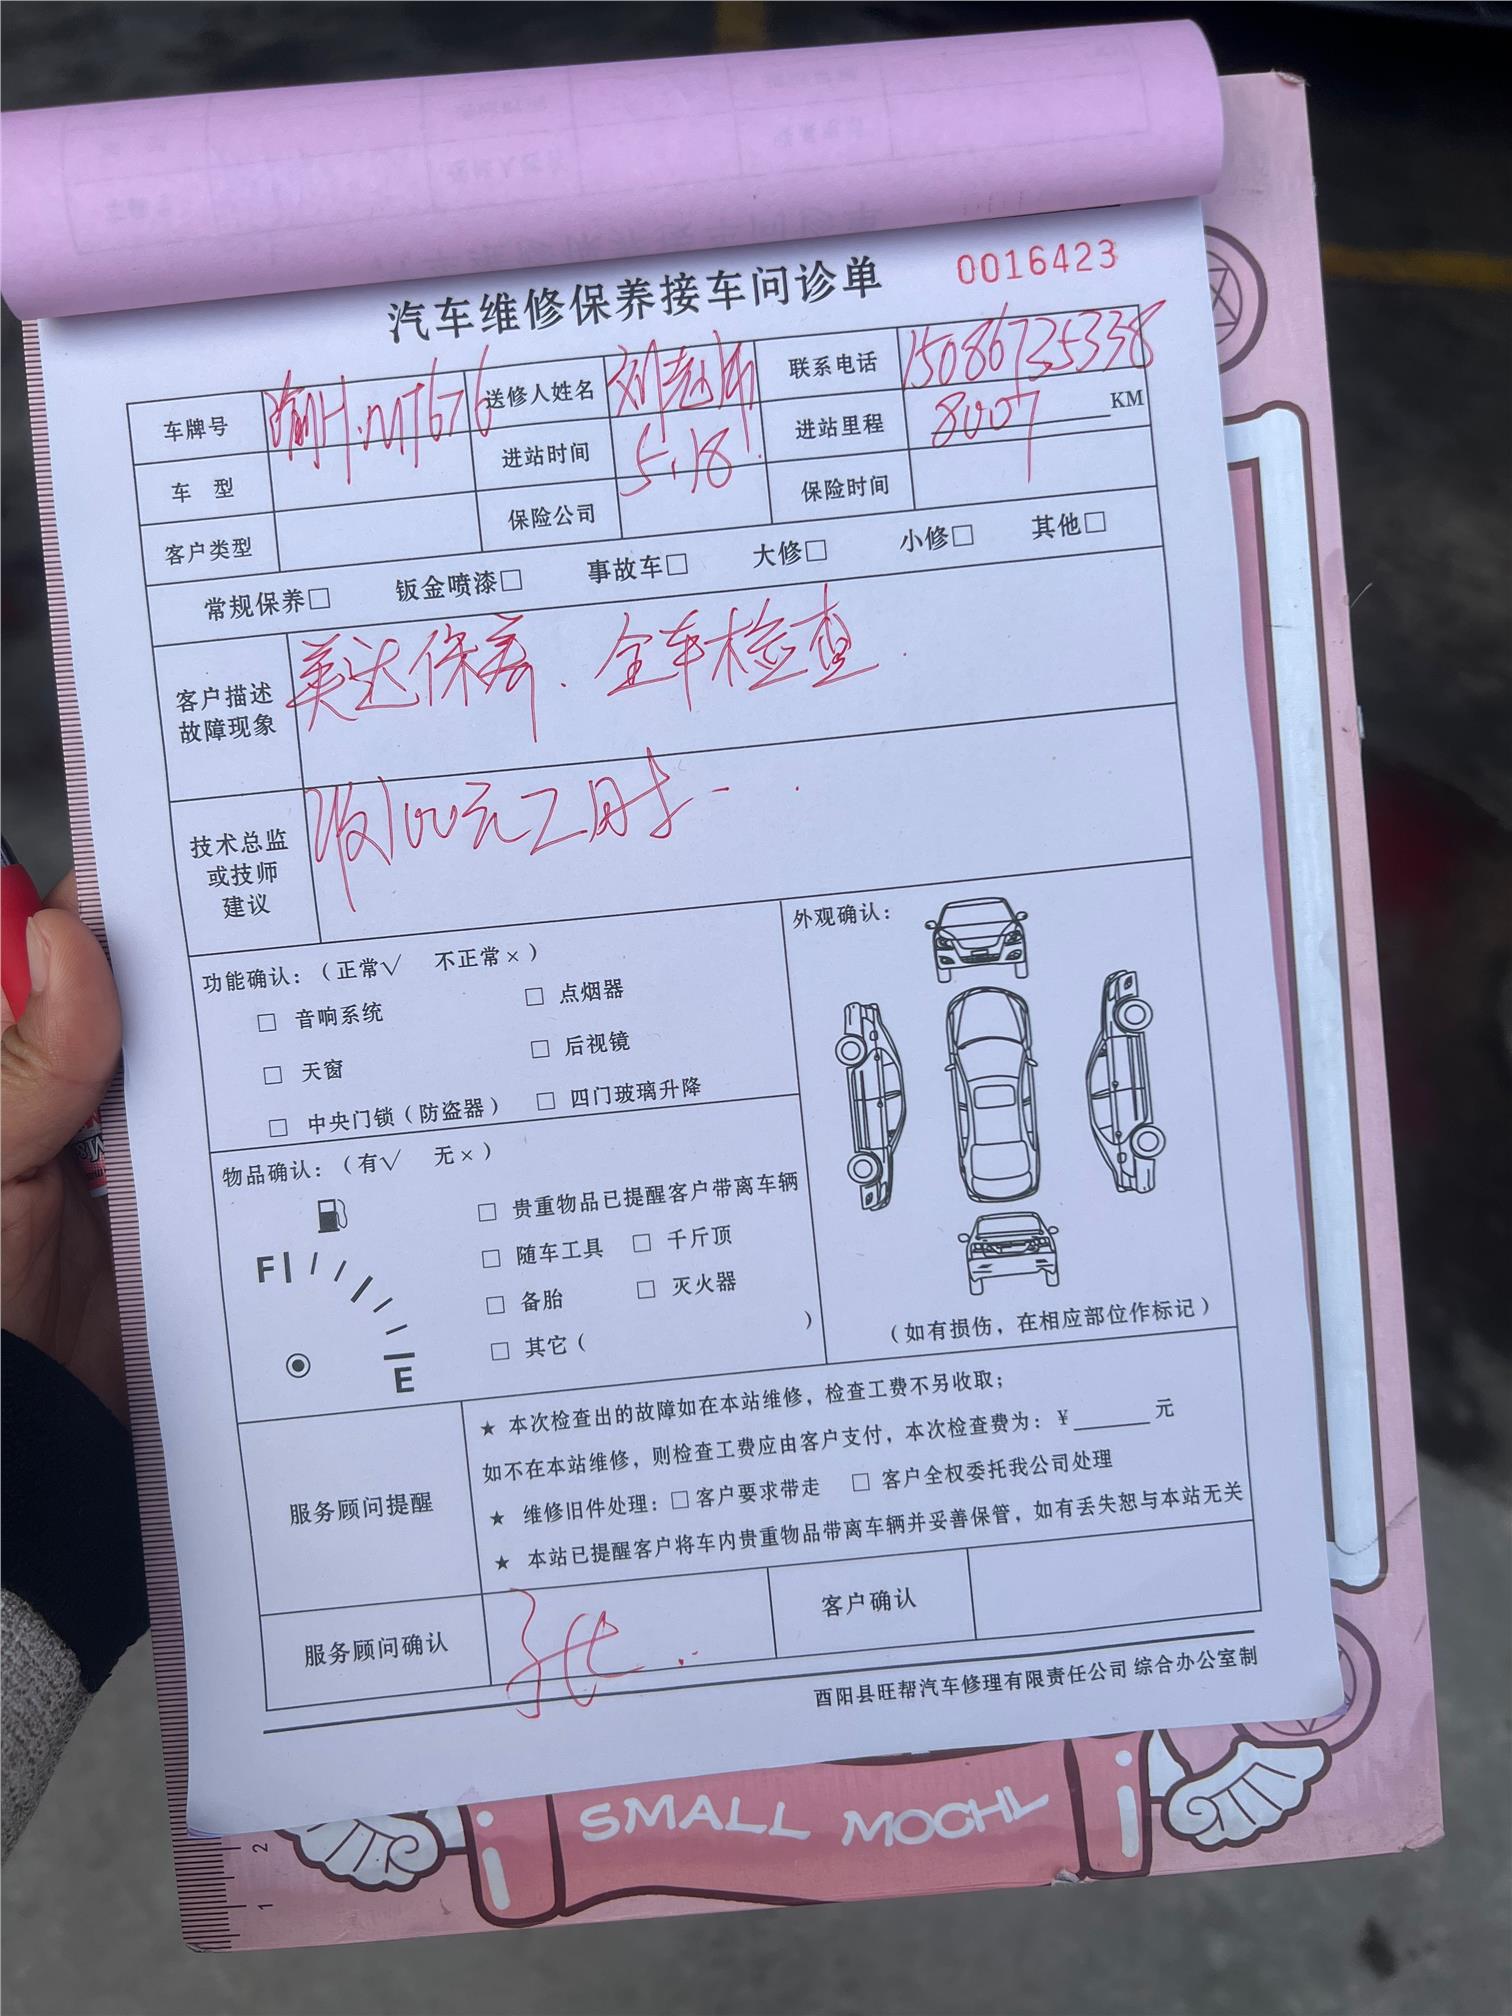 汽车维修保养接车问诊单 0016423
车牌号 渝H.M7676 送修人姓名 联系电话 15086735338
车 型 进站时间 5.18 进站里程 8007 KM
客户类型 保险公司 保险时间
常规保养□ 钣金喷漆□ 事故车□ 大修□ 小修□ 其他□
客户描述
故障现象
美达保养.全车检查.
技术总监
或技师
建议
收100元工时
功能确认:(正常√ 不正常×)
□ 音响系统 □ 点烟器
□ 天窗 □ 后视镜
□ 中央门锁(防盗器) □ 四门玻璃升降
外观确认:
(如有损伤,在相应部位作标记)
物品确认:(有√ 无×)
F
E
□ 贵重物品已提醒客户带离车辆
□ 随车工具 □ 千斤顶
□ 备胎 □ 灭火器
□ 其它( )
服务顾问提醒
★ 本次检查出的故障如在本站维修,检查工费不另收取;
如不在本站维修,则检查工费应由客户支付,本次检查费为:¥______元
★ 维修旧件处理:□客户要求带走 □ 客户全权委托我公司处理
★ 本站已提醒客户将车内贵重物品带离车辆并妥善保管,如有丢失恕与本站无关
服务顾问确认 客户确认
酉阳县旺帮汽车修理有限责任公司 综合办公室制
SMALL MOCHL
2
1